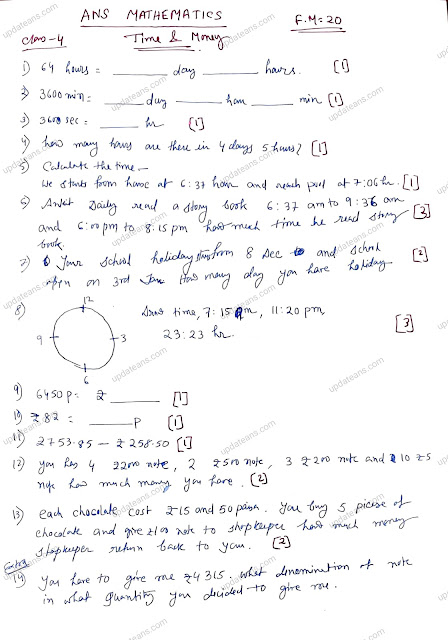 ANS MATHEMATICS
F.M=20
Class-4
Time & Money
1) 64 hours = ____ day ____ hours. [1]
2) 3600 min = ____ day ____ hour ____ min [1]
3) 3600 sec = ____ hr [1]
4) how many hours are there in 4 days 5 hours? [1]
5) Calculate the time—
We starts from house at 6:37 hour and reach pool at 7:06 hr. [1]
6) Ankit Daily read a story book 6:37 am to 9:36 am
and 6:00 pm to 8:15 pm how much time he read story [3]
book.
7) Your school holiday from 8 Dec to and school
open on 3rd Jan How many day you have holiday [2]
8) Draw time, 7:15 pm, 11:20 pm
23:23 hr. [3]
12
9
3
6
9) 6450 p = ₹ ____ [1]
10) ₹82 = ____ p [1]
11) 2753.85 — ₹258.50 [1]
12) you has 4 2200 note, 2 ₹500 note, 3 ₹200 note and 10 ₹5
note how much money you have. [2]
13) each chocolate cost ₹15 and 50 paisa. You buy 5 piece of
chocolate and give ₹100 note to shopkeeper how much money
shopkeeper return back to you. [2]
14) You have to give me ₹4315. What denomination of note
in what quantity you decided to give me.
updateans.com